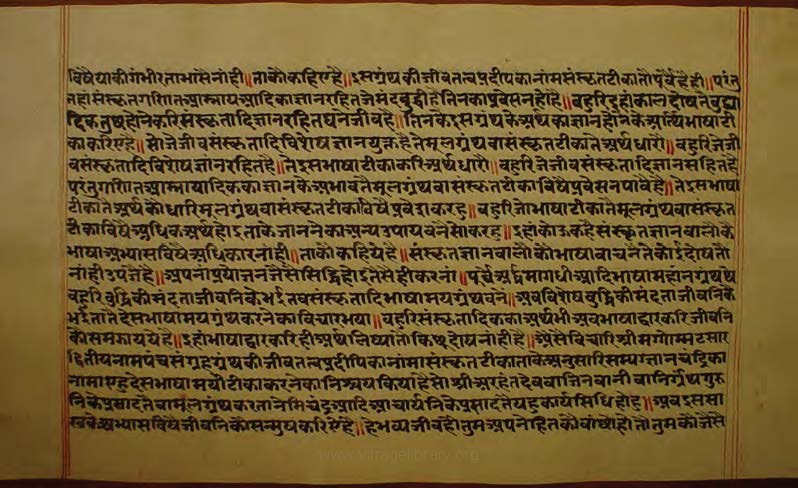 विषैयाकी गंभीरता भासै नांही॥ ताकौं कहिए है॥ इस ग्रंथकी जीवतत्वप्रदीपका नांम संस्कृत टीका तौ पूर्वै है ही॥ परंतु
तहां संस्कृत गणित आम्नाय आदिका ज्ञान रहित जे मंदबुद्धी है तिनका प्रवेस न हो है॥ बहुरि इहां काल दोषतैं बुद्ध्या
दिक तुछ होने करि संस्कृतादि ज्ञान रहित घनें जीव है॥ तिनकै इस ग्रंथके अर्थका ज्ञान होनेके अर्थि भाषा टी
का करिए है॥ सो जे जीव संस्कृतादि विशेष ज्ञान युक्त है ते मूल ग्रंथ वा संस्कृत टीकातैं अर्थ धारौ॥ बहुरि जे जी
व संस्कृतादि विशेष ज्ञान रहित है॥ ते इस भाषा टीका करि अर्थ धारौ॥ बहुरि जे जीव संस्कृतादि ज्ञान सहित है
परंतु गणित आम्नायादिकका ज्ञानके अभावतैं मूल ग्रंथ वा संस्कृत टीका विषै प्रवेस न पावै है॥ ते इस भाषा
टीकातैं अर्थकौं धारि मूल ग्रंथ वा संस्कृत टीका विषै प्रवेश करहु॥ बहुरि जो भाषा टीकातैं मूल ग्रंथ वा संस्कृत
टीका विषै अधिक अर्थ होइ ताके जाननेका अन्य उपाय बनै सो करहु॥ इहां कोऊ कहै संस्कृत ज्ञानवालोंके
भाषा अभ्यास विषै अधिकार नांही॥ ताकौं कहिये है॥ संस्कृत ज्ञानवालोंकौं भाषा वाचनेतैं कोई दोष तौ
नांही उपजै है॥ अपनां प्रयोजन जैसैं सिद्धि होइ तैसैं ही करनां॥ पूर्वै अर्द्धमागधी आदि भाषामई महान ग्रंथ थे
बहुरि बुद्धिकी मंदता जीवनिकै भई तब संस्कृतादि भाषामय ग्रंथ बने॥ अब विशेष बुद्धिकी मंदता जीवनिकै
भई तातैं देस भाषामय ग्रंथ करनेका विचार भया॥ बहुरि संस्कृतादिकका अर्थ भी अब भाषा द्वार करि जीवनि
कौं समझाइये है॥ इहां भाषा द्वार करि ही अर्थ लिष्या तौ किछू दोष नांही है॥ असैं विचारि श्रीमत् गोम्मटसार
द्वितीय नाम पंच संग्रह ग्रंथकी जीवतत्वप्रदीपिका नांमा संस्कृत टीका ताकै अनुसारि सम्यग्ज्ञानचंद्रिका
नामा एहु देस भाषामयी टीका करनेका निश्चय किया है॥ सो श्री अरहंत देव वा जिनवानी वा निर्ग्रंथ गुरु
निके प्रसादतैं वा मूल ग्रंथ करता नेमिचंद्र आदि आचार्यनिके प्रसादतैं यहु कार्य सिधि होहु॥ अब इस सा
स्त्रके अभ्यास विषै जीवनिकौं सन्मुष करिए है॥ हे भव्य जीव हो तुम अपने हितकौं वांछो हो तौ तुमकौं जैसैं
www.vitragelibrary.org